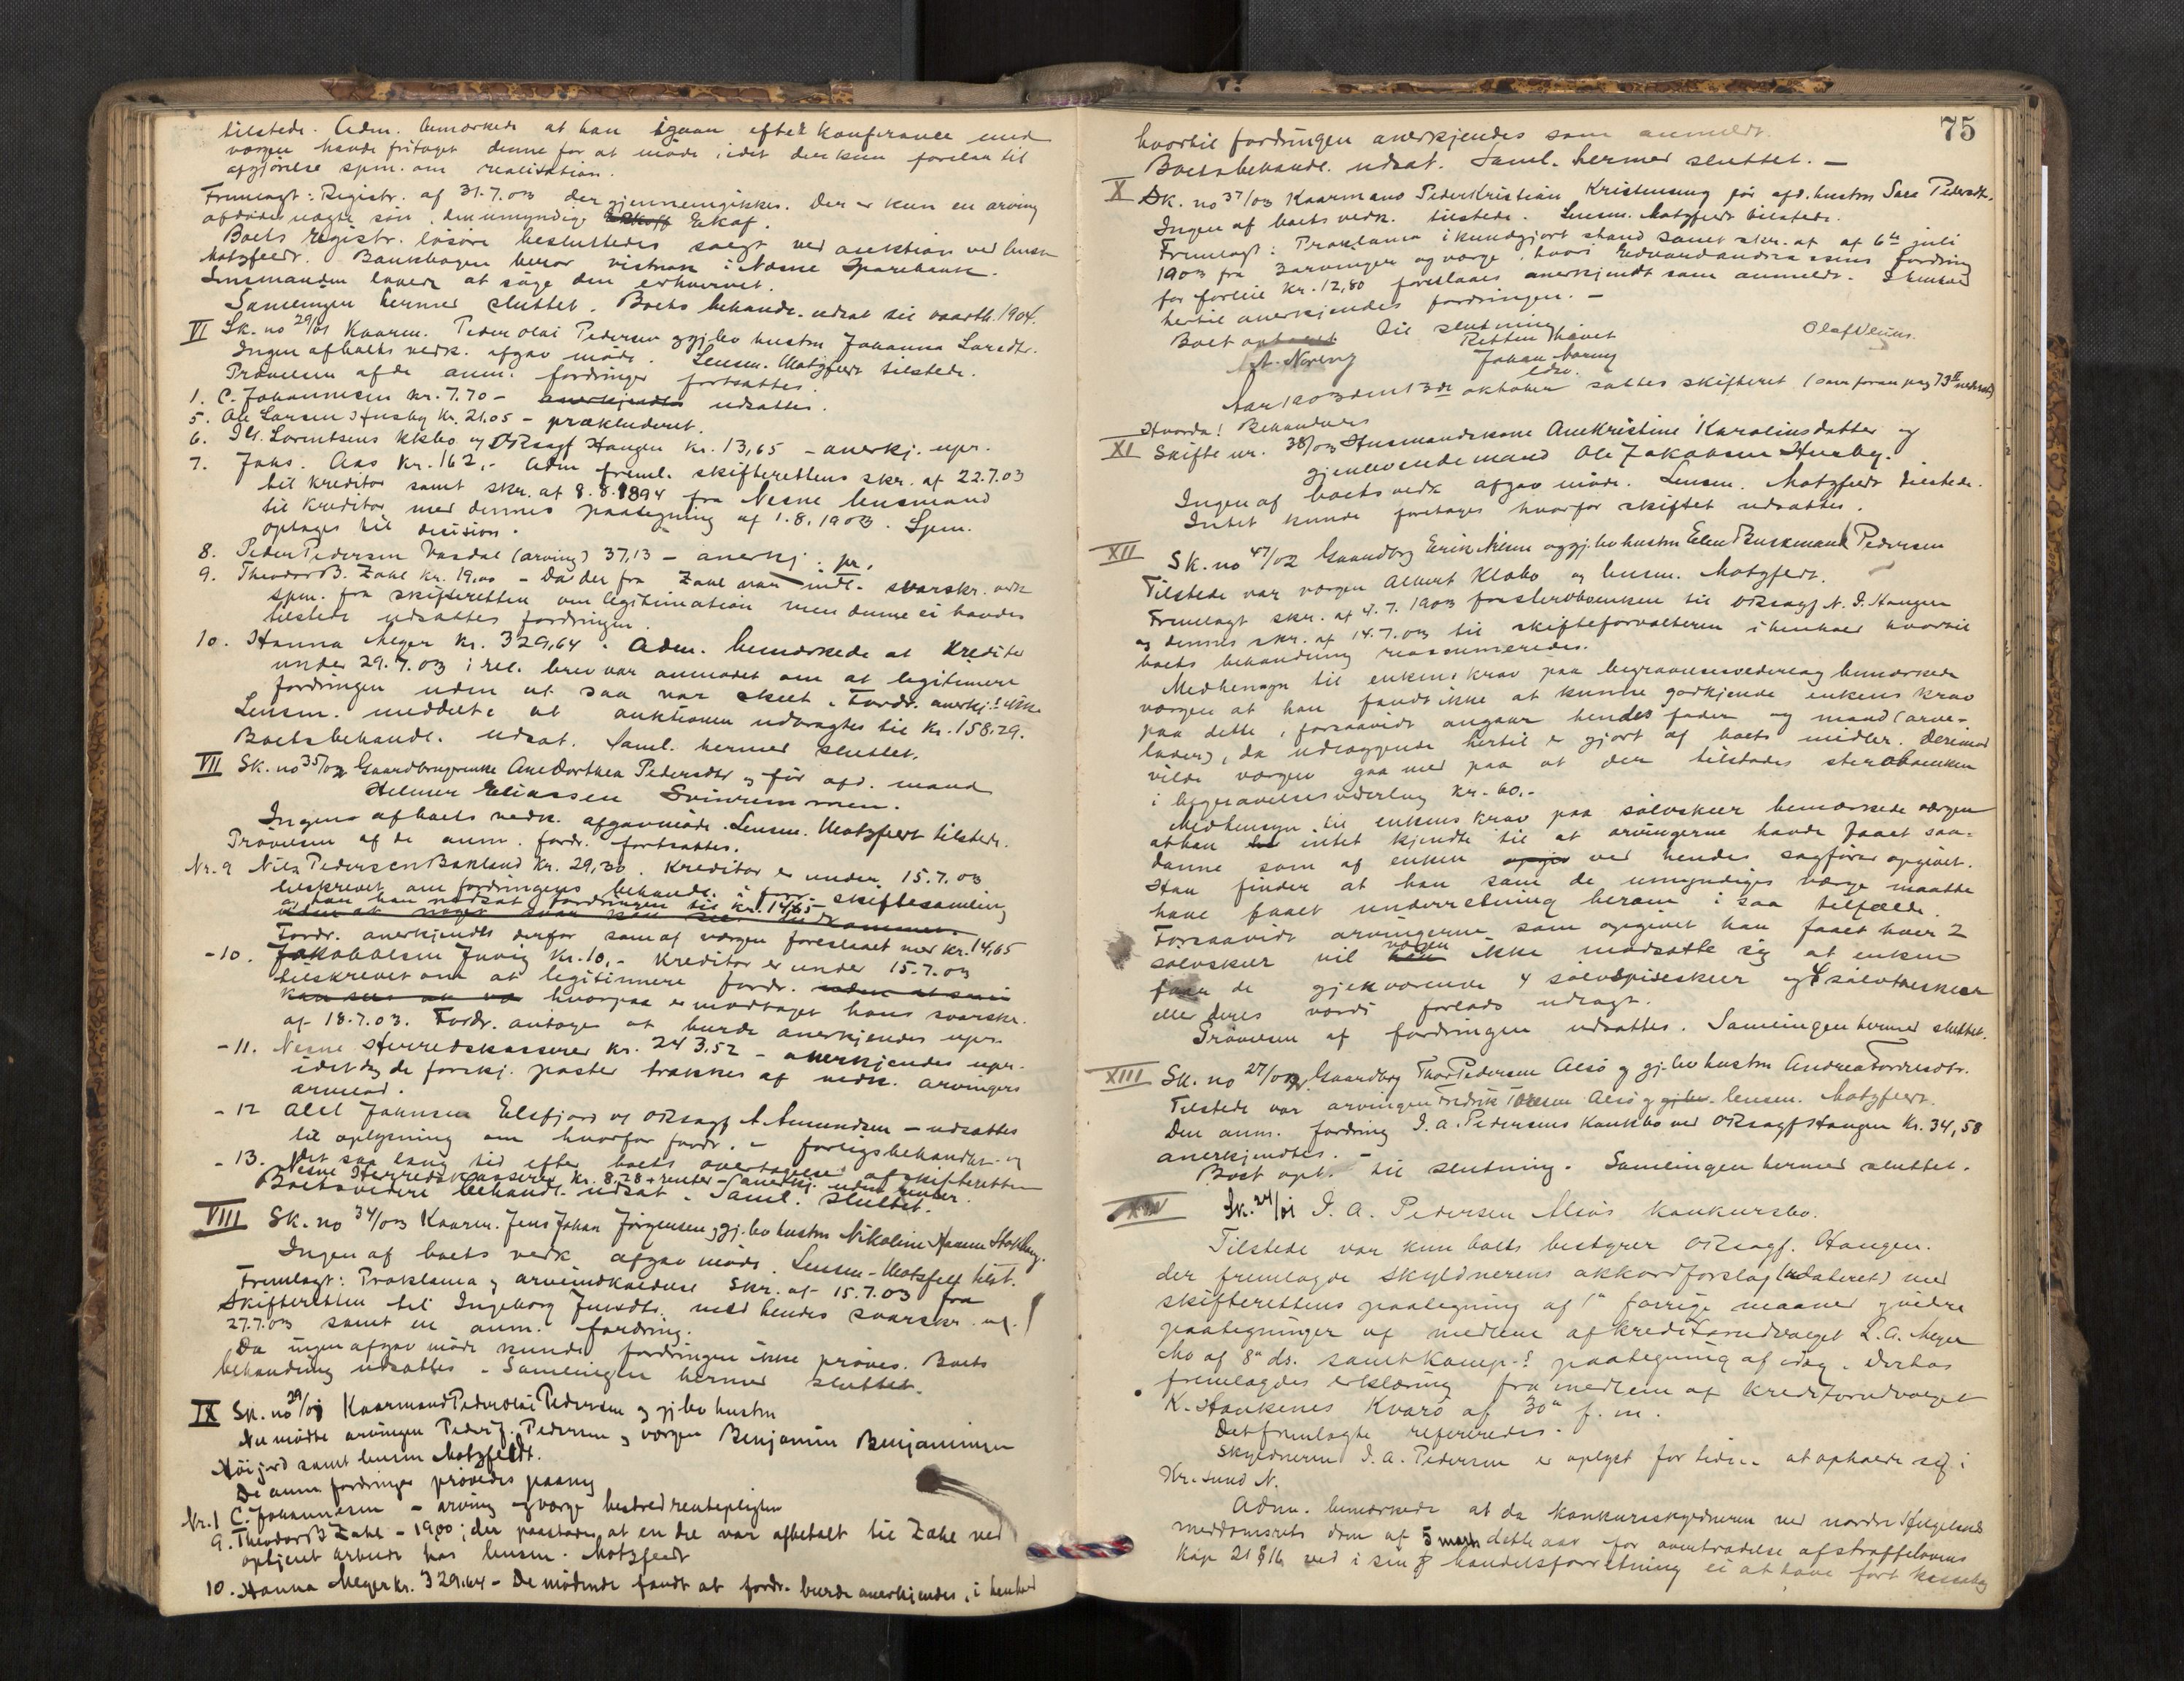 tilstede. Adm. bemærkede at han igaar efter konferance med
værgen havde fritaget denne for at møde, idet der kun forelaa til
afgjørelse spm. om realisation.
Fremlagt: Registr. af 31.7.03 der gjennemgikkes. Der er kun en arving
afdødes uægte søn, den umyndige Ekof.
Boets registr. løsøre besluttedes solgt ved auktion ved lensm.
Motzfeldt. Bankbogen beror vistnok i Nesne Sparebank.
Lensmanden lovede at søge den erhvervet.
Samlingen hermed sluttet. Boets behandl. udsat til vaarth. 1904.
VI Sk. no 29/01 Kaarm. Peder Olai Pedersen og gj.lev hustru Johanna Larsdtr.
Ingen af boets vedk. afgav møde. Lensm. Motzfeldt tilstede.
Prøvelsen af de anm. fordringer fortsattes.
1. C. Johannesen kr. 7.70 - anerkjendtes udsattes.
5. Ole Larsen Husby Kr. 21.05 - prækluderet.
6. Ill. Lorentsens kkbo og ORsagf Haugen Kr. 13,65 - anerkj. upr.
7. Johs. Aas Kr. 162,- Adm freml. skifterettens skr. af 22.7.03
til kreditor samt skr. af 8.8.1894 fra Nesne lensmand
til kreditor med dennes paategning af 1.8.1903. Spm.
optages til decision.
8. Peder Pedersen Vasdal (arving) 37,13 - anerkj. pr.
9. Theodor B. Zahl Kr. 19.00 - Da der fra Zahl var indl. svarskr. vedk
spm. fra skifteretten om legitimation men denne ei havdes
tilstede udsattes fordringen.
10. Hanna Meyer Kr. 329,64. Adm. bemærkede at Kreditor
under 29.7.03 i rec. brev var anmodet om at legitimere
fordringen uden at saa var skeet. Fordr. anerkj. ikke
Lensm. meddelte at auktionen udbragtes til Kr. 158.29.
Boets behandl. udsat. Saml. hermed sluttet.
VII Sk. no 35/02 Gaardbrugerenke Ane Dorthea Pedersdtr og før afd. mand
Helmer Eliassen Svinrummen.
Ingen af boets vedk. afgav møde. Lensm. Motzfeldt tilstede.
Prøvelsen af de anm. fordr. fortsattes.
Nr. 9 Nils Pedersen Bakland Kr. 29,30. Kreditor er under 15.7.03
tilskrevet om fordringens behandl. i forr. skiftesamling
og han har nedsat fordringen til kr. 14,65
uden at noget svar kan sees indkommet.
Fordr. anerkjendtes derfor som af værgen foreslaaet med kr. 14,65
- 10. Jakob Olsen Juvig Kr. 10,- Kreditor er under 15.7.03
tilskrevet om at legitimere fordr. uden at svar
kan sees at hvorpaa er modtaget hans svarskr.
af 18.7.03. Fordr. antoges at burde anerkjendes upr.
- 11. Nesne Herredskasserer Kr. 243.52 - anerkjendes upr.
idet dog de forskj. poster trækkes af vedk. arvingers
arvelod.
- 12 Alet Johnsen Elsfjord og ORsagf A Amundsen - udsattes
til oplysning om hvorfor fordr. er forligsbehandlet og
det saa lang tid efter boets overtagelse af skifteretten
- 13. Nesne Herredskasserer Kr. 8.28 + renter - anerkj. uden renter.
Boets videre behandl. udsat. Saml. sluttet.
VIII Sk. no 34/03 Kaarm. Jens Johan Jørgensen og gj.lev hustru Nikoline Stokberg.
Ingen af boets vedk afgav møde. Lensm. Motzfelt tilst.
Fremlagt: Proklama og arveindkaldelse Skr. af 15.7.03 fra
Skifteretten til Ingeborg Jensdtr. med hendes svarskr. af
27.7.03 samt en anm. fordring.
Da ingen afgav møde kunde fordringen ikke prøves. Boets
behandling udsattes. Samlingen hermed sluttet.
IX Sk. no 29/01 Kaarmand Peder Olai Pedersen og gj.lev hustru
Nu mødte arvingen Peder J. Pedersen og værgen Benjamin Benjaminsen
Høijord samt lensm Motzfeldt.
De anm fordringer prøvedes paany
Nr. 1 C. Johannesen - arving og værge bestred rentepligten
9. Theodor B Zahl - 19,00; der paastodes at en del var afbetalt til Zahl ved
optjent arbeide hos lensm. Motzfeldt
10. Hanna Meyer kr. 329.64 - De mødende fandt at fordr. burde anerkjendes, i henhold
75
hvortil fordringen anerkjendes som anmeldt.
Boets behandl. udsat. Saml. hermed sluttet. -
X Sk. no 37/03 Kaarmand Peder Kristian Kristensens før afd. hustru Sara Pedersdtr.
Ingen af boets vedk. tilstede. Lensm. Motzfeldt tilstede.
Fremlagt: Proklama i kundgjort stand samt skr. af 6te juli
1903 fra 3 arvinger og værge, hvori Edvard Andreassens fordring
for forleie kr. 12,80 foreslaaes anerkjendt som anmeldt. I henhold
hertil anerkjendes fordringen. -
Boet optoges til slutning
Retten hævet
A. Noreng
Johan Noreng
edsv.
Olaf Vleüus.
Aar 1903 den 13de oktober sattes skifteret (som foran pag 73 nedsat)
Hvorda! Behandles
XI Skifte nr. 38/03 Husmandskone Ane Kristine Karolinsdatter og
gjenlevende mand Ole Jakobsen Husby.
Ingen af boets vedk afgav møde. Lensm. Motzfeldt tilstede.
Intet kunde foretages hvorfor skiftet udsattes.
XII Sk. no 47/02 Gaardbrg Erik Nilsen og gj.lev hustru Elen Buskmand Pedersen
Tilstede var værgen Albert Klobo og lensm. Motzfeldt.
Fremlagt skr. af 4.7.1903 fra sterboenken til ORsagf N. J. Haugen
og dennes skr. af 14.7.03 til skifteforvalteren i henhold hvortil
boets behandling reassumeredes.
Med hensyn til enkens krav paa begravelsesvederlag bemærkede
værgen at han fandt ikke at kunne godkjende enkens krav
paa dette, forsaavidt angaar hendes fader og mand (arve-
lader), da udlæggende hertil er gjort af boets midler. Derimod
vilde værgen gaa med paa at der tilstodes sterboenken
i begravelsesvederlag Kr. 60.-
Med hensyn til enkens krav paa sølvskeer bemærkede værgen
at han intet kjendte til at arvingerne havde faaet saa-
danne som af enken opgiv ved hendes sagfører opgivet.
Han finder at han som de umyndiges værge maatte
have faaet underretning herom i saa tilfælde.
Forsaavidt arvingerne som opgivet har faaet hver 2
sølvskeer vil han værgen ikke modsætte sig at enken
faar de gjenværende 4 sølvspiseskeer og 4 sølvtheskeer
eller deres værdi forlods udlagt.
Prøvelsen af fordringen udsattes. Samlingen hermed sluttet.
XIII Sk. no 27/02 Gaardbrg Thor Pedersen Alsø og gj.lev hustru Andrea Tordensdtr.
Tilstede var arvingen Fredrik Thorsen Alsø og gj.lev. lensm. Motzfeldt.
Den anm. fordring I. A. Pedersens konkbo ved ORsagf Haugen Kr. 34,58
anerkjendtes. -
Boet opt. til slutning. Samlingen hermed sluttet.
XIV Sk. 24/01 I. A. Pedersen Meøs konkursbo.
Tilstede var kun boets bestyrer ORsagf. Haugen.
der fremlagde skyldnerens akkordforslag (udateret) med
skifterettens paategning af 1ste forrige maaned og videre
paategninger af medlem af kreditorudvalget L. A. Meyer
Mo af 8de ds. samt paategning af idag. Derhos
fremlagdes erklæring fra medlem af kreditorudvalget
K. Haukenes Kvarø af 30te f. m.
Det fremlagte refereredes.
Skyldneren I. A. Pedersen er oplyst for tiden at opholde sig i
Kr. sund N.
Adm. bemærkede at da konkursskyldneren ved nordre Helgelands
meddomsrets dom af 5 marts dette aar for overtrædelse af straffelovens
kap 21 § 16 ved i sin handelsforretning ei at have ført kassabog